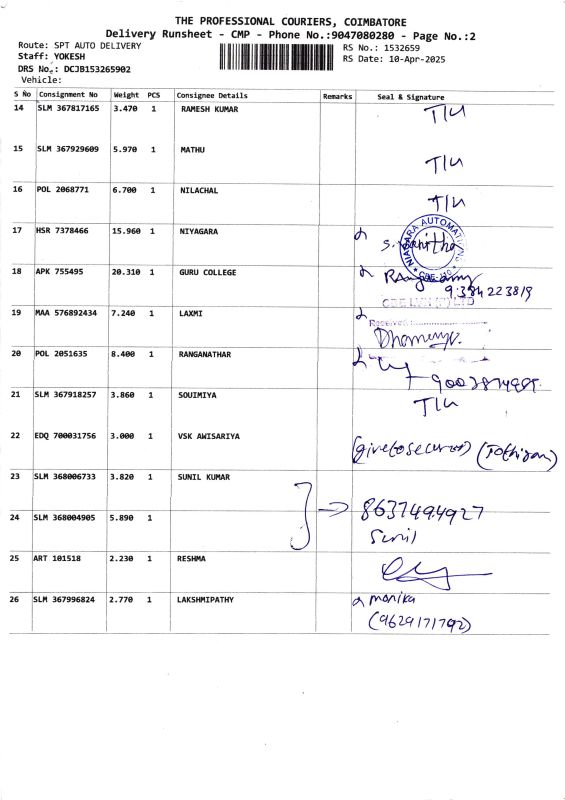 THE PROFESSIONAL COURIERS, COIMBATORE
Delivery Runsheet - CMP - Phone No.:9047080280 - Page No.:2
Route: SPT AUTO DELIVERY
RS No.: 1532659
Staff: YOKESH
RS Date: 10-Apr-2025
DRS No.: DCJB153265902
Vehicle:
S No Consignment No Weight PCS Consignee Details Remarks Seal & Signature
14 SLM 367817165 3.470 1 RAMESH KUMAR T/U
15 SLM 367929609 5.970 1 MATHU T/U
16 POL 2068771 6.700 1 NILACHAL T/U
17 HSR 7378466 15.960 1 NIYAGARA
NIAGARA AUTOMATION
18 APK 755495 20.310 1 GURU COLLEGE
19 MAA 576892434 7.240 1 LAXMI
Received
20 POL 2051635 8.400 1 RANGANATHAR
21 SLM 367918257 3.860 1 SOUIMIYA T/U
22 EDQ 700031756 3.000 1 VSK AWISARIYA
23 SLM 368006733 3.820 1 SUNIL KUMAR
8637494927
24 SLM 368004905 5.890 1
Sunil
25 ART 101518 2.230 1 RESHMA
26 SLM 367996824 2.770 1 LAKSHMIPATHY monika
(9629171792)